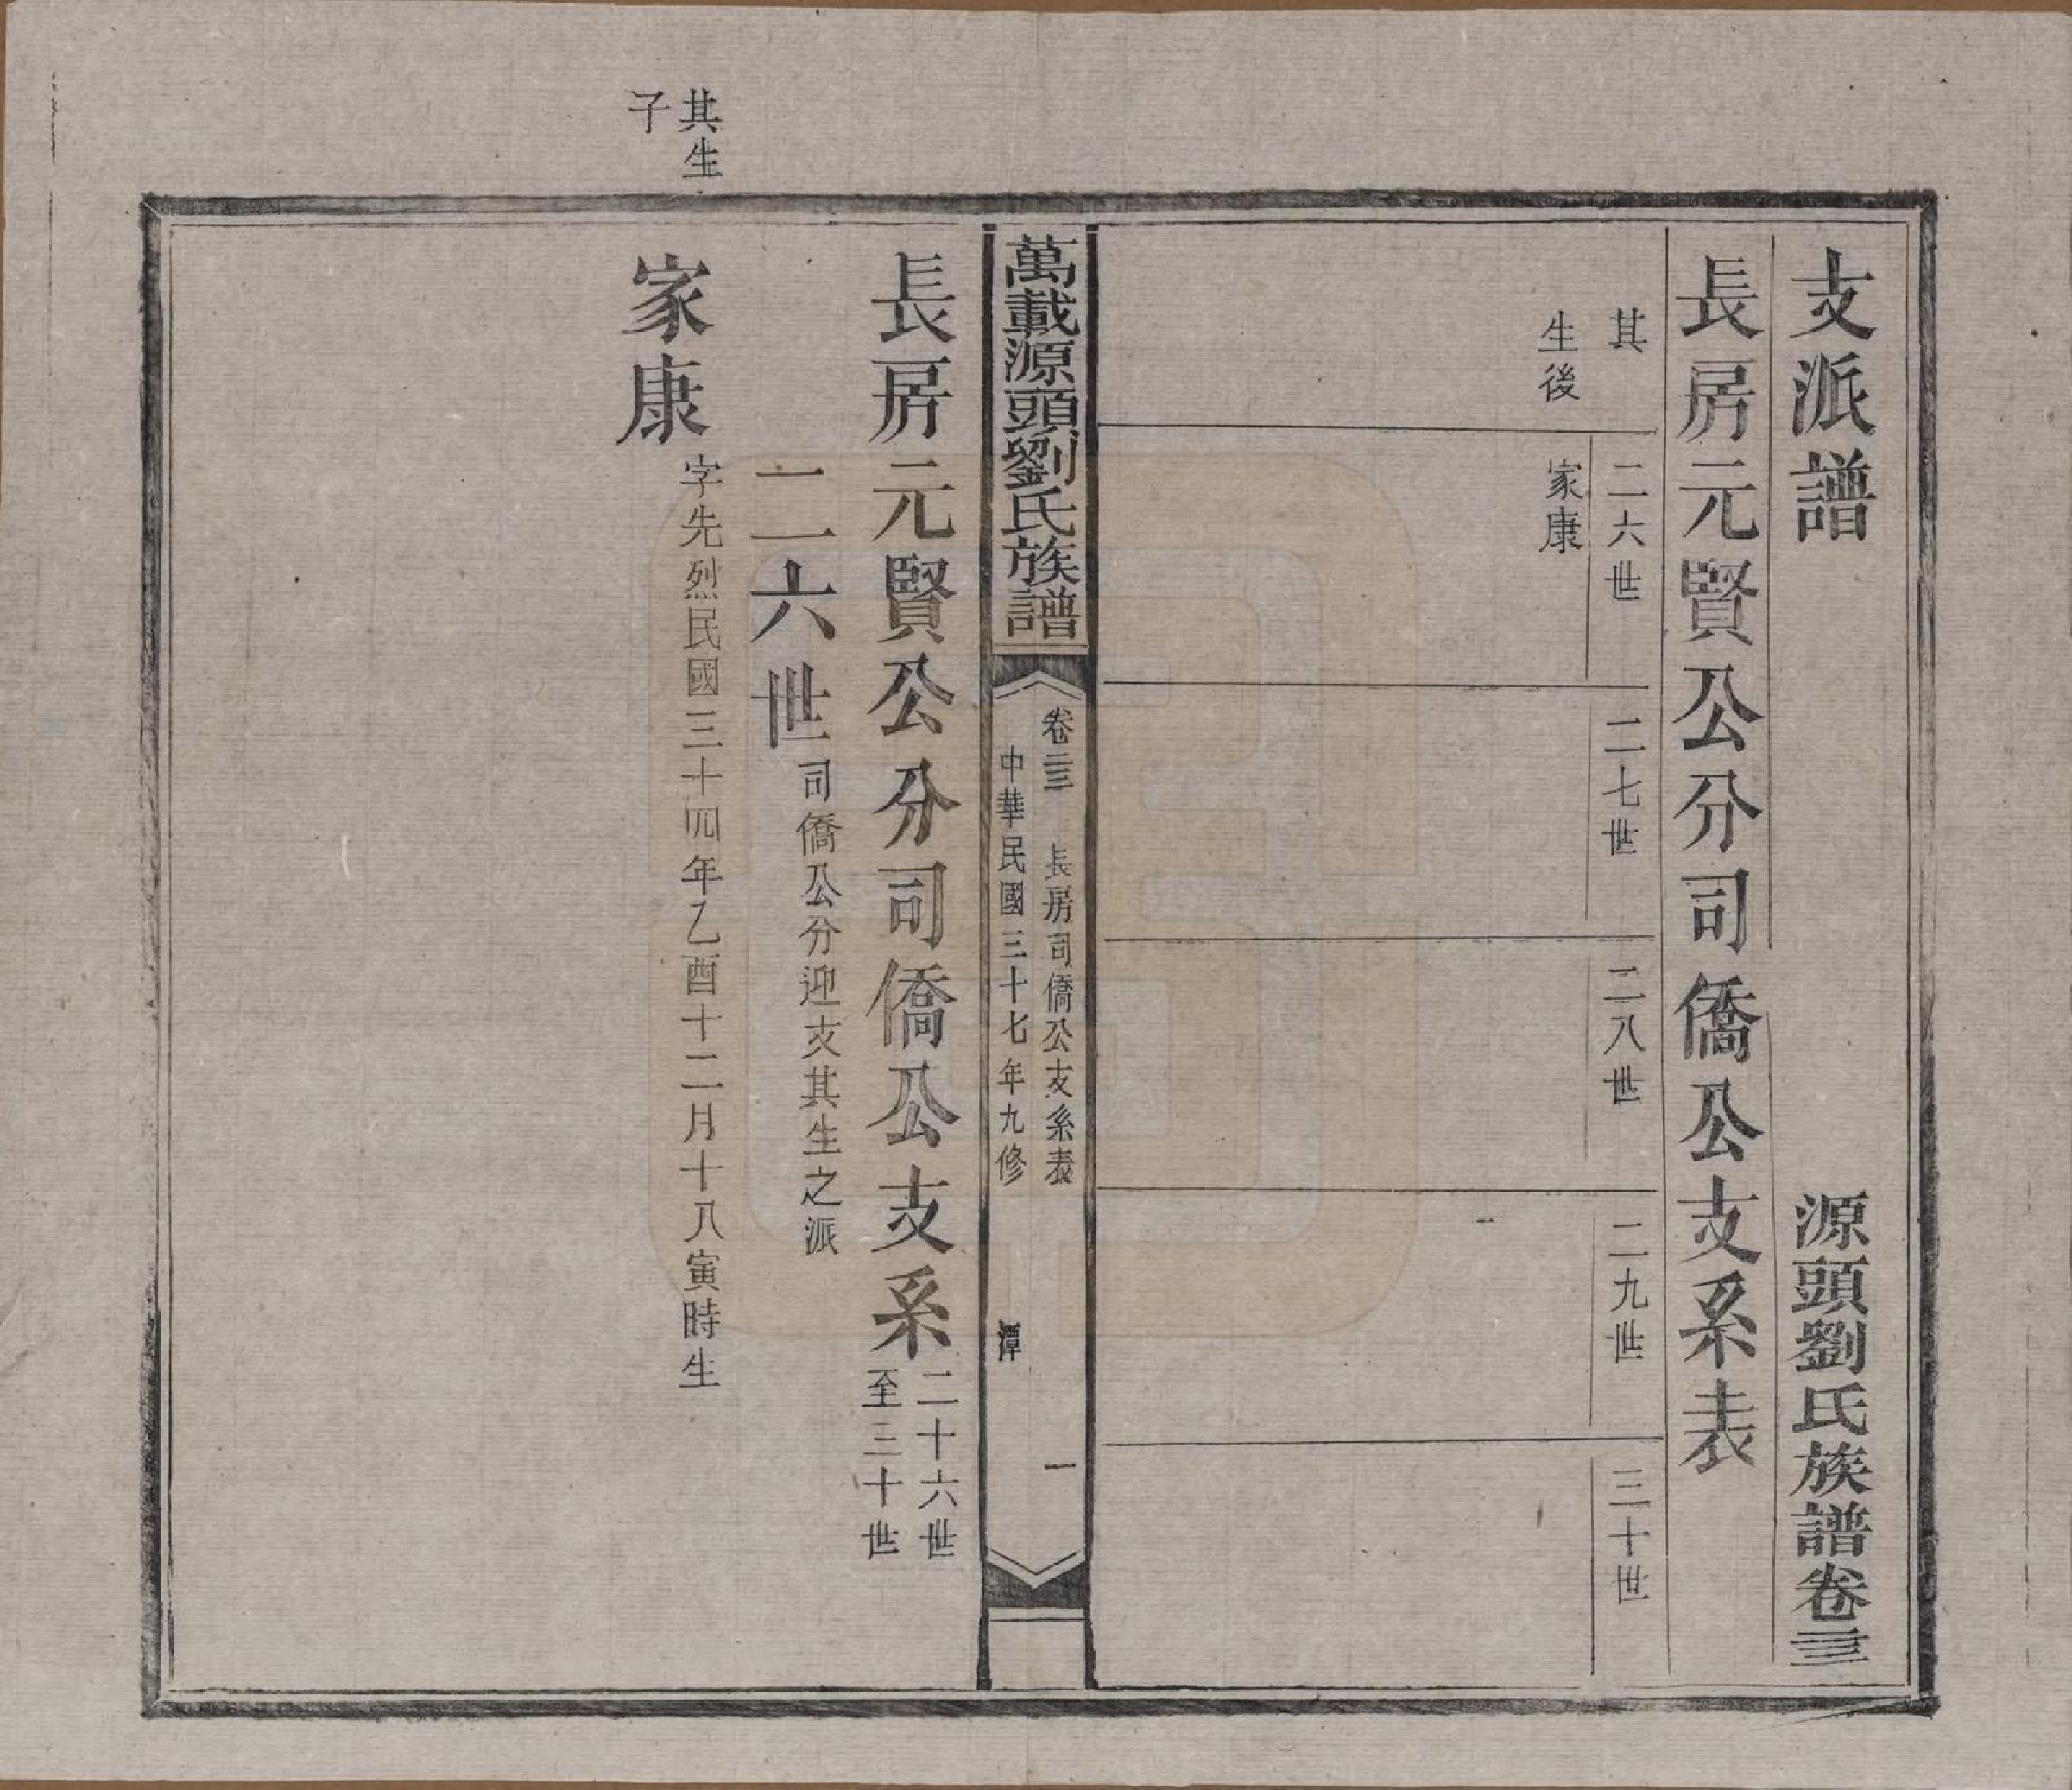 支派譜
源頭劉氏族譜卷三三
長房元賢公分司僑公支系表
其
生後
二六世
家康
二七世
二八世
二九世
三十世
萬載源頭劉氏族譜
卷三三 長房司僑公支系表 一
中華民國三十七年九修 潭
長房元賢公分司僑公支系
二十六世
至三十世
二六世
司僑公分迎支其生之派
其生
子
家康
字先烈民國三十四年乙酉十二月十八寅時生